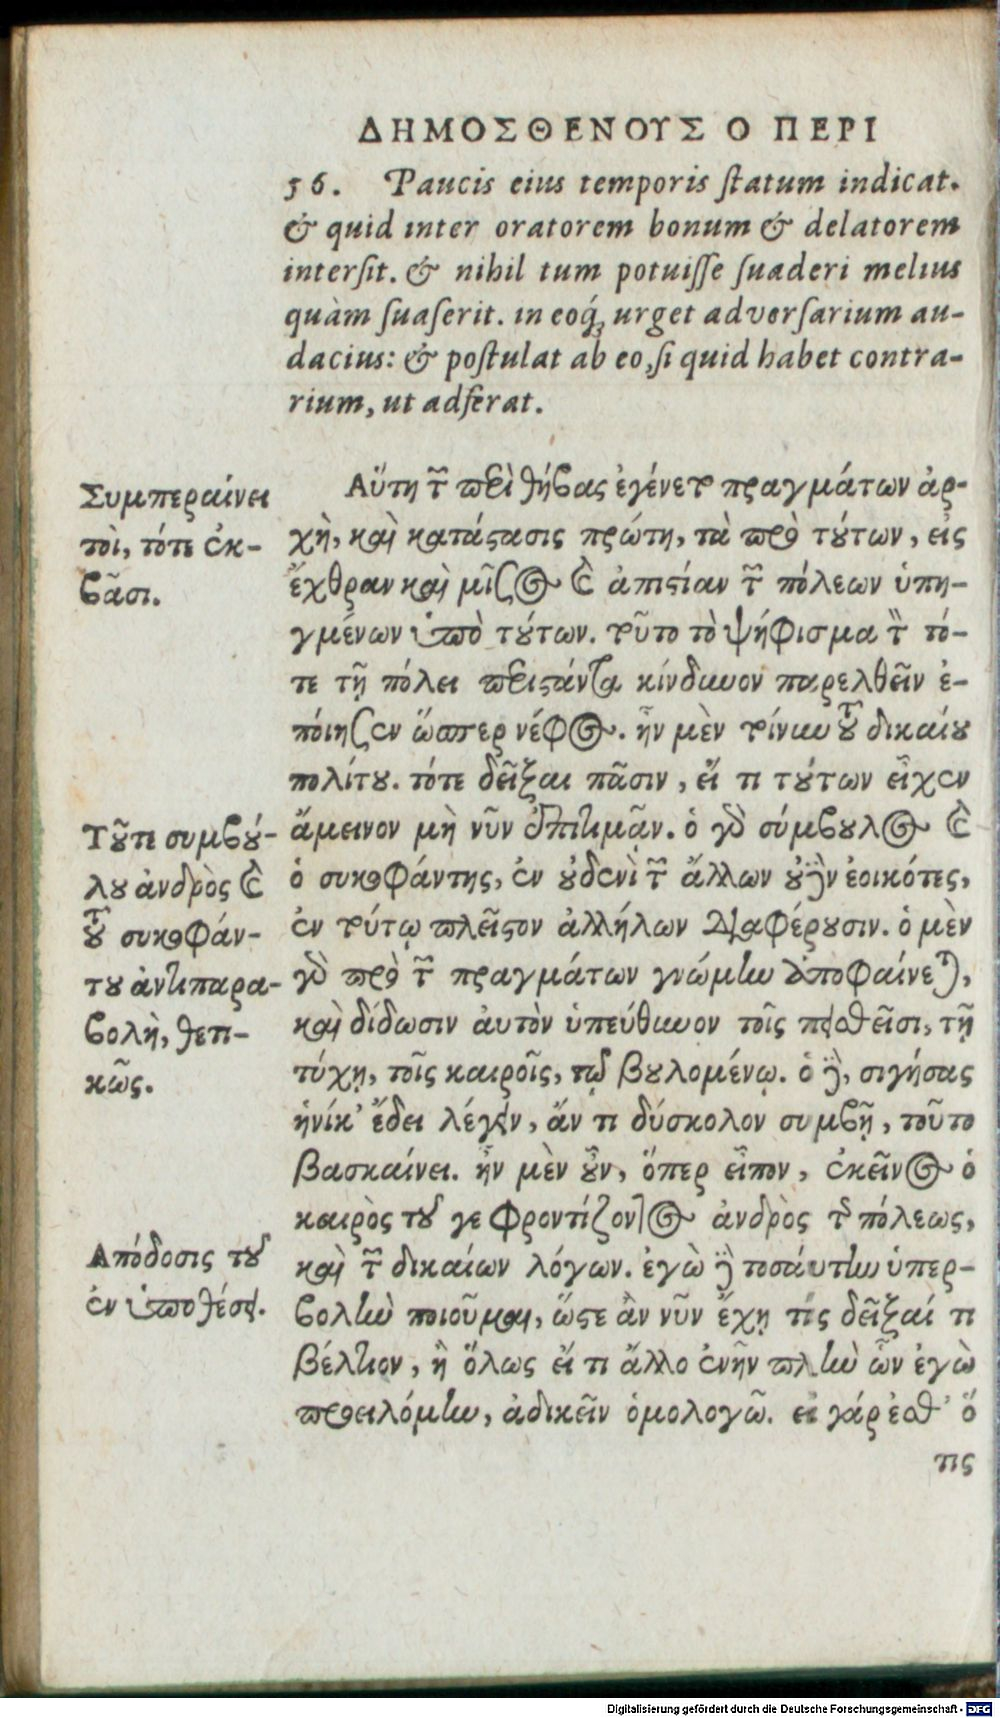 ΔΗΜΟΣΘΕΝΟΥΣ Ο ΠΕΡΙ
56. Paucis eius temporis ſtatum indicat.
& quid inter oratorem bonum & delatorem
interſit. & nihil tum potuiſſe ſuaderi melius
quàm ſuaſerit. in eoq́; urget adverſarium au-
dacius: & poſtulat ab eo, ſi quid habet contra-
rium, ut adferat.
Συμπεραίνει
τοι, τότε ἐκ-
βᾶσι.
Αὕτη τῶν περὶ θήβας ἐγένετο πραγμάτων ἀρ-
χὴ, καὶ κατάστασις πρώτη, τὰ πρὸ τούτων, εἰς
ἔχθραν καὶ μῖσος καὶ ἀπιστίαν τῶν πόλεων ὑπη-
γμένων ὑπὸ τούτων. τοῦτο τὸ ψήφισμα τὸν τό-
τε τῇ πόλει περιστάντα κίνδυνον παρελθεῖν ἐ-
ποίησεν ὥσπερ νέφος. ἦν μὲν τοίνυν τοῦ δικαίου
πολίτου. τότε δεῖξαι πᾶσιν, εἴ τι τούτων εἶχεν
ἄμεινον μὴ νῦν ἐπιτιμᾷν. ὁ γὰρ σύμβουλος καὶ
ὁ συκοφάντης, ἐν οὐδενὶ τῶν ἄλλων οὐδὲν ἐοικότες,
ἐν τούτῳ πλεῖστον ἀλλήλων διαφέρουσιν. ὁ μὲν
γὰρ πρὸ τῶν πραγμάτων γνώμην ἀποφαίνεται,
καὶ δίδωσιν αὑτὸν ὑπεύθυνον τοῖς πεισθεῖσι, τῇ
τύχῃ, τοῖς καιροῖς, τῷ βουλομένῳ. ὁ δὲ, σιγήσας
ἡνίκ' ἔδει λέγειν, ἄν τι δύσκολον συμβῇ, τοῦτο
βασκαίνει. ἦν μὲν οὖν, ὅπερ εἶπον, ἐκεῖνος ὁ
καιρὸς τοῦ γε φροντίζοντος ἀνδρὸς τῆς πόλεως,
καὶ τῶν δικαίων λόγων. ἐγὼ δὲ τοσαύτην ὑπερ-
βολὴν ποιοῦμαι, ὥστε ἂν νῦν ἔχῃ τὶς δεῖξαί τι
βέλτιον, ἢ ὅλως εἴ τι ἄλλο ἐνῆν πλὴν ὧν ἐγὼ
προειλόμην, ἀδικεῖν ὁμολογῶ. εἰ γάρ ἐσθ' ὅ
τις
Τουτὶ συμβού-
λου ἀνδρὸς καὶ
τοῦ συκοφάν-
του ἀντιπαρα-
βολὴ, θετι-
κῶς.
Απόδοσις τοῦ
ἐν ὑποθέσει.
Digitalisierung gefördert durch die Deutsche Forschungsgemeinschaft - DFG